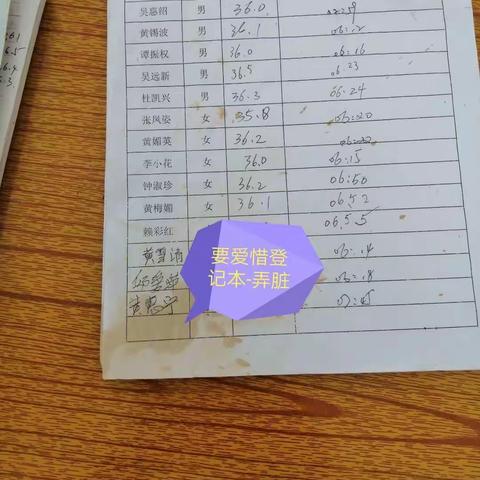 吴惠绍 男 36.0
黄锡波 男 36.1 06:12
谭振权 男 36.0 06:16
吴远新 男 36.5 06 23
杜凯兴 男 36.3 06:24
张凤姿 女 35.8 06:20
黄媚英 女 36.2 06:20
李小花 女 36.0 06:15
钟淑珍 女 36.2 06:50
黄梅媚 女 36.1 06.52
赖彩红 06.55
06:14
06:18
要爱惜登
记本-弄脏